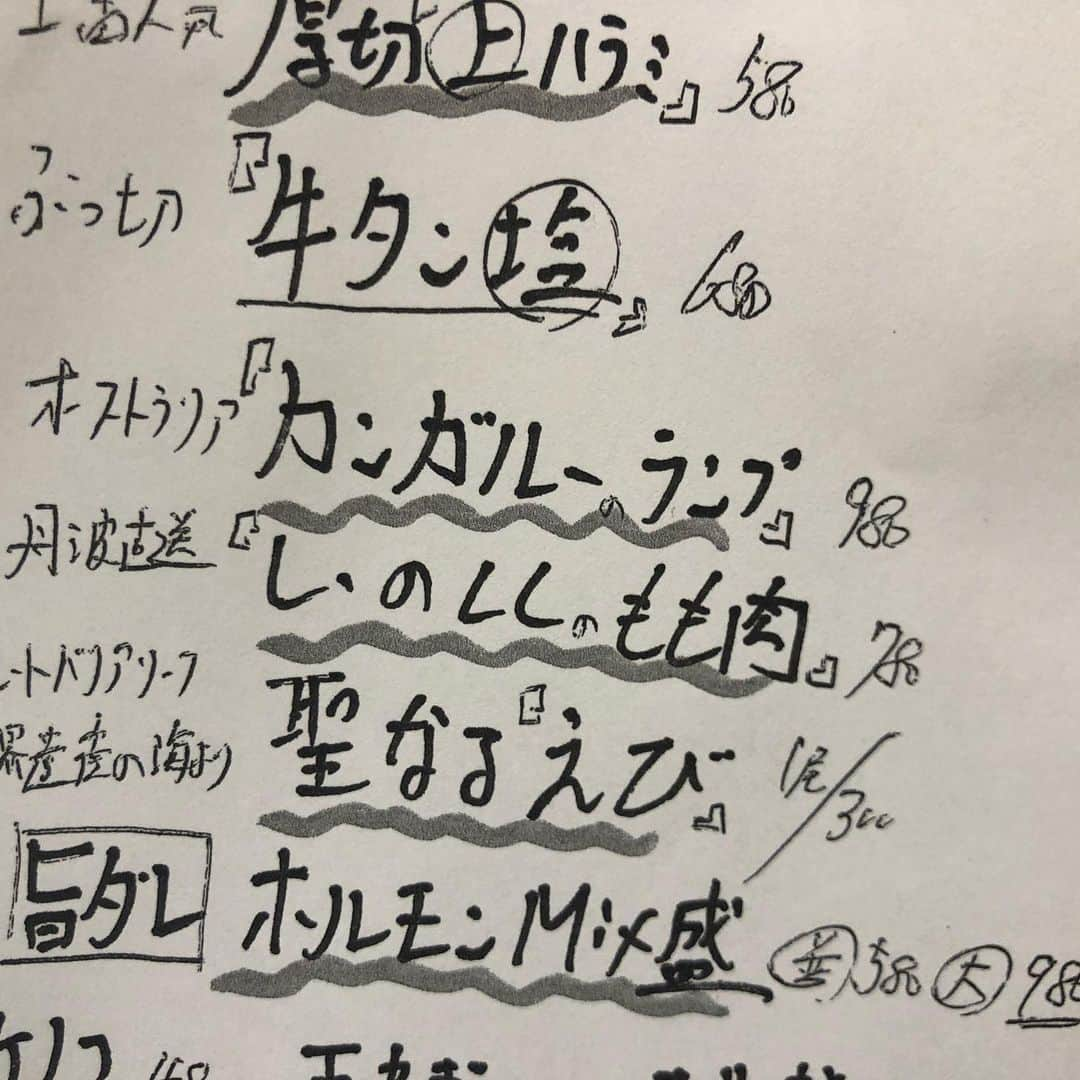 厚切 上 ハラミ』 580
ぶつ切 『牛タン 塩』 680
オーストラリア 『カンガルーのランプ』 980
丹波直送 『いのししのもも肉』 780
ートバリアリーフ
界遺産の海より 聖なる『えび』 1尾/300
旨ダレ ホルモンMix盛 並 580 大 980